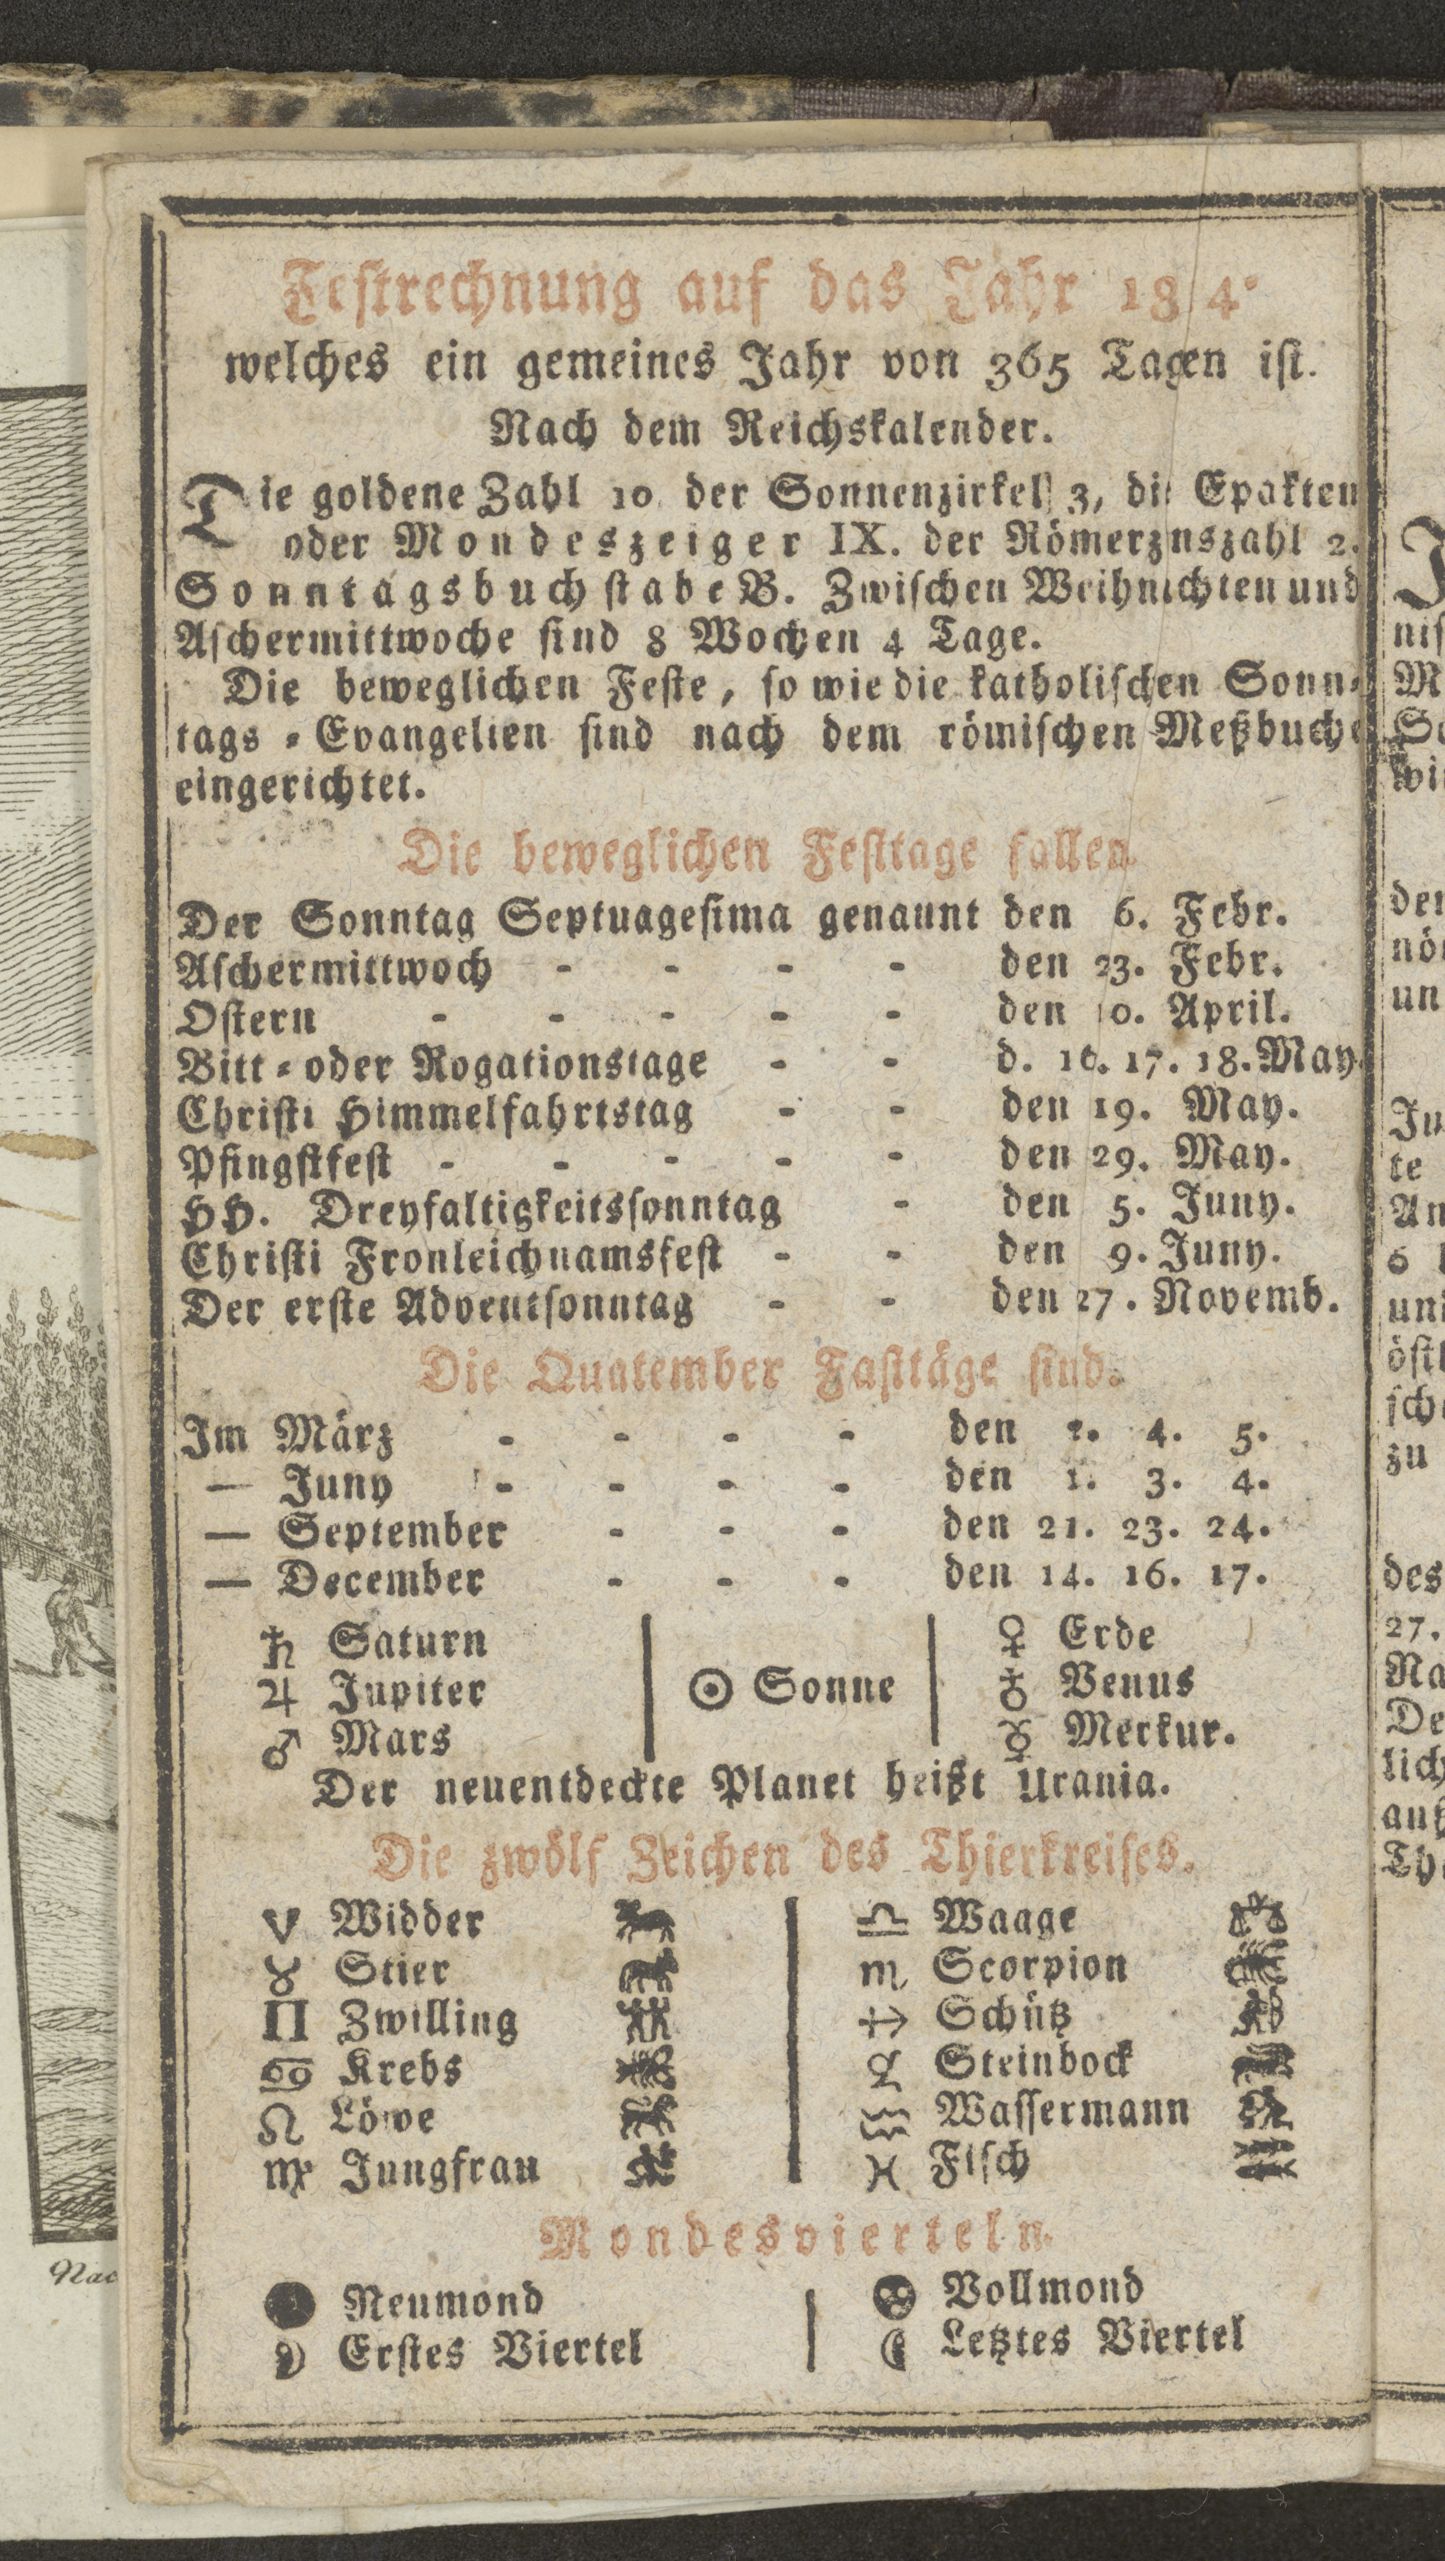 Festrechnung auf das Jahr 1814.
welches ein gemeines Jahr von 365 Tagen ist.
Nach dem Reichskalender.
Die goldene Zahl 10 der Sonnenzirkel 3, die Epakten
oder Mondeszeiger IX. der Römerznszahl 2.
Sonntagsbuchstabe B. Zwischen Weihnachten und
Aschermittwoche sind 8 Wochen 4 Tage.
Die beweglichen Feste, so wie die katholischen Sonn⸗
tags⸗Evangelien sind nach dem römischen Meßbuche
eingerichtet.
Die beweglichen Festtage fallen
Der Sonntag Septuagesima genaunt den 6. Febr.
Aschermittwoch - - - - den 23. Febr.
Ostern - - - - - den 10. April.
Bitt⸗oder Rogationstage - - d. 16. 17. 18. May.
Christi Himmelfahrtstag - - den 19. May.
Pfingstfest - - - - - den 29. May.
HH. Dreyfaltigkeitssonntag - den 5. Juny.
Christi Fronleichnamsfest - - den 9. Juny.
Der erste Adventsonntag - - den 27. Novemb.
Die Quatember Fasttäge sind.
Im März - - - - den 2. 4. 5.
— Juny - - - - den 1. 3. 4.
— September - - - den 21. 23. 24.
— December - - - den 14. 16. 17.
♄ Saturn
♃ Jupiter
♂ Mars
☉ Sonne
♀ Erde
♁ Venus
☿ Merkur.
Der neuentdeckte Planet heißt Urania.
Die zwölf Zeichen des Thierkreises.
♈ Widder
♉ Stier
♊ Zwilling
♋ Krebs
♌ Löwe
♍ Jungfrau
♎ Waage
♏ Scorpion
♐ Schütz
♑ Steinbock
♒ Wassermann
♓ Fisch
Mondesvierteln.
Neumond
Erstes Viertel
Vollmond
Letztes Viertel